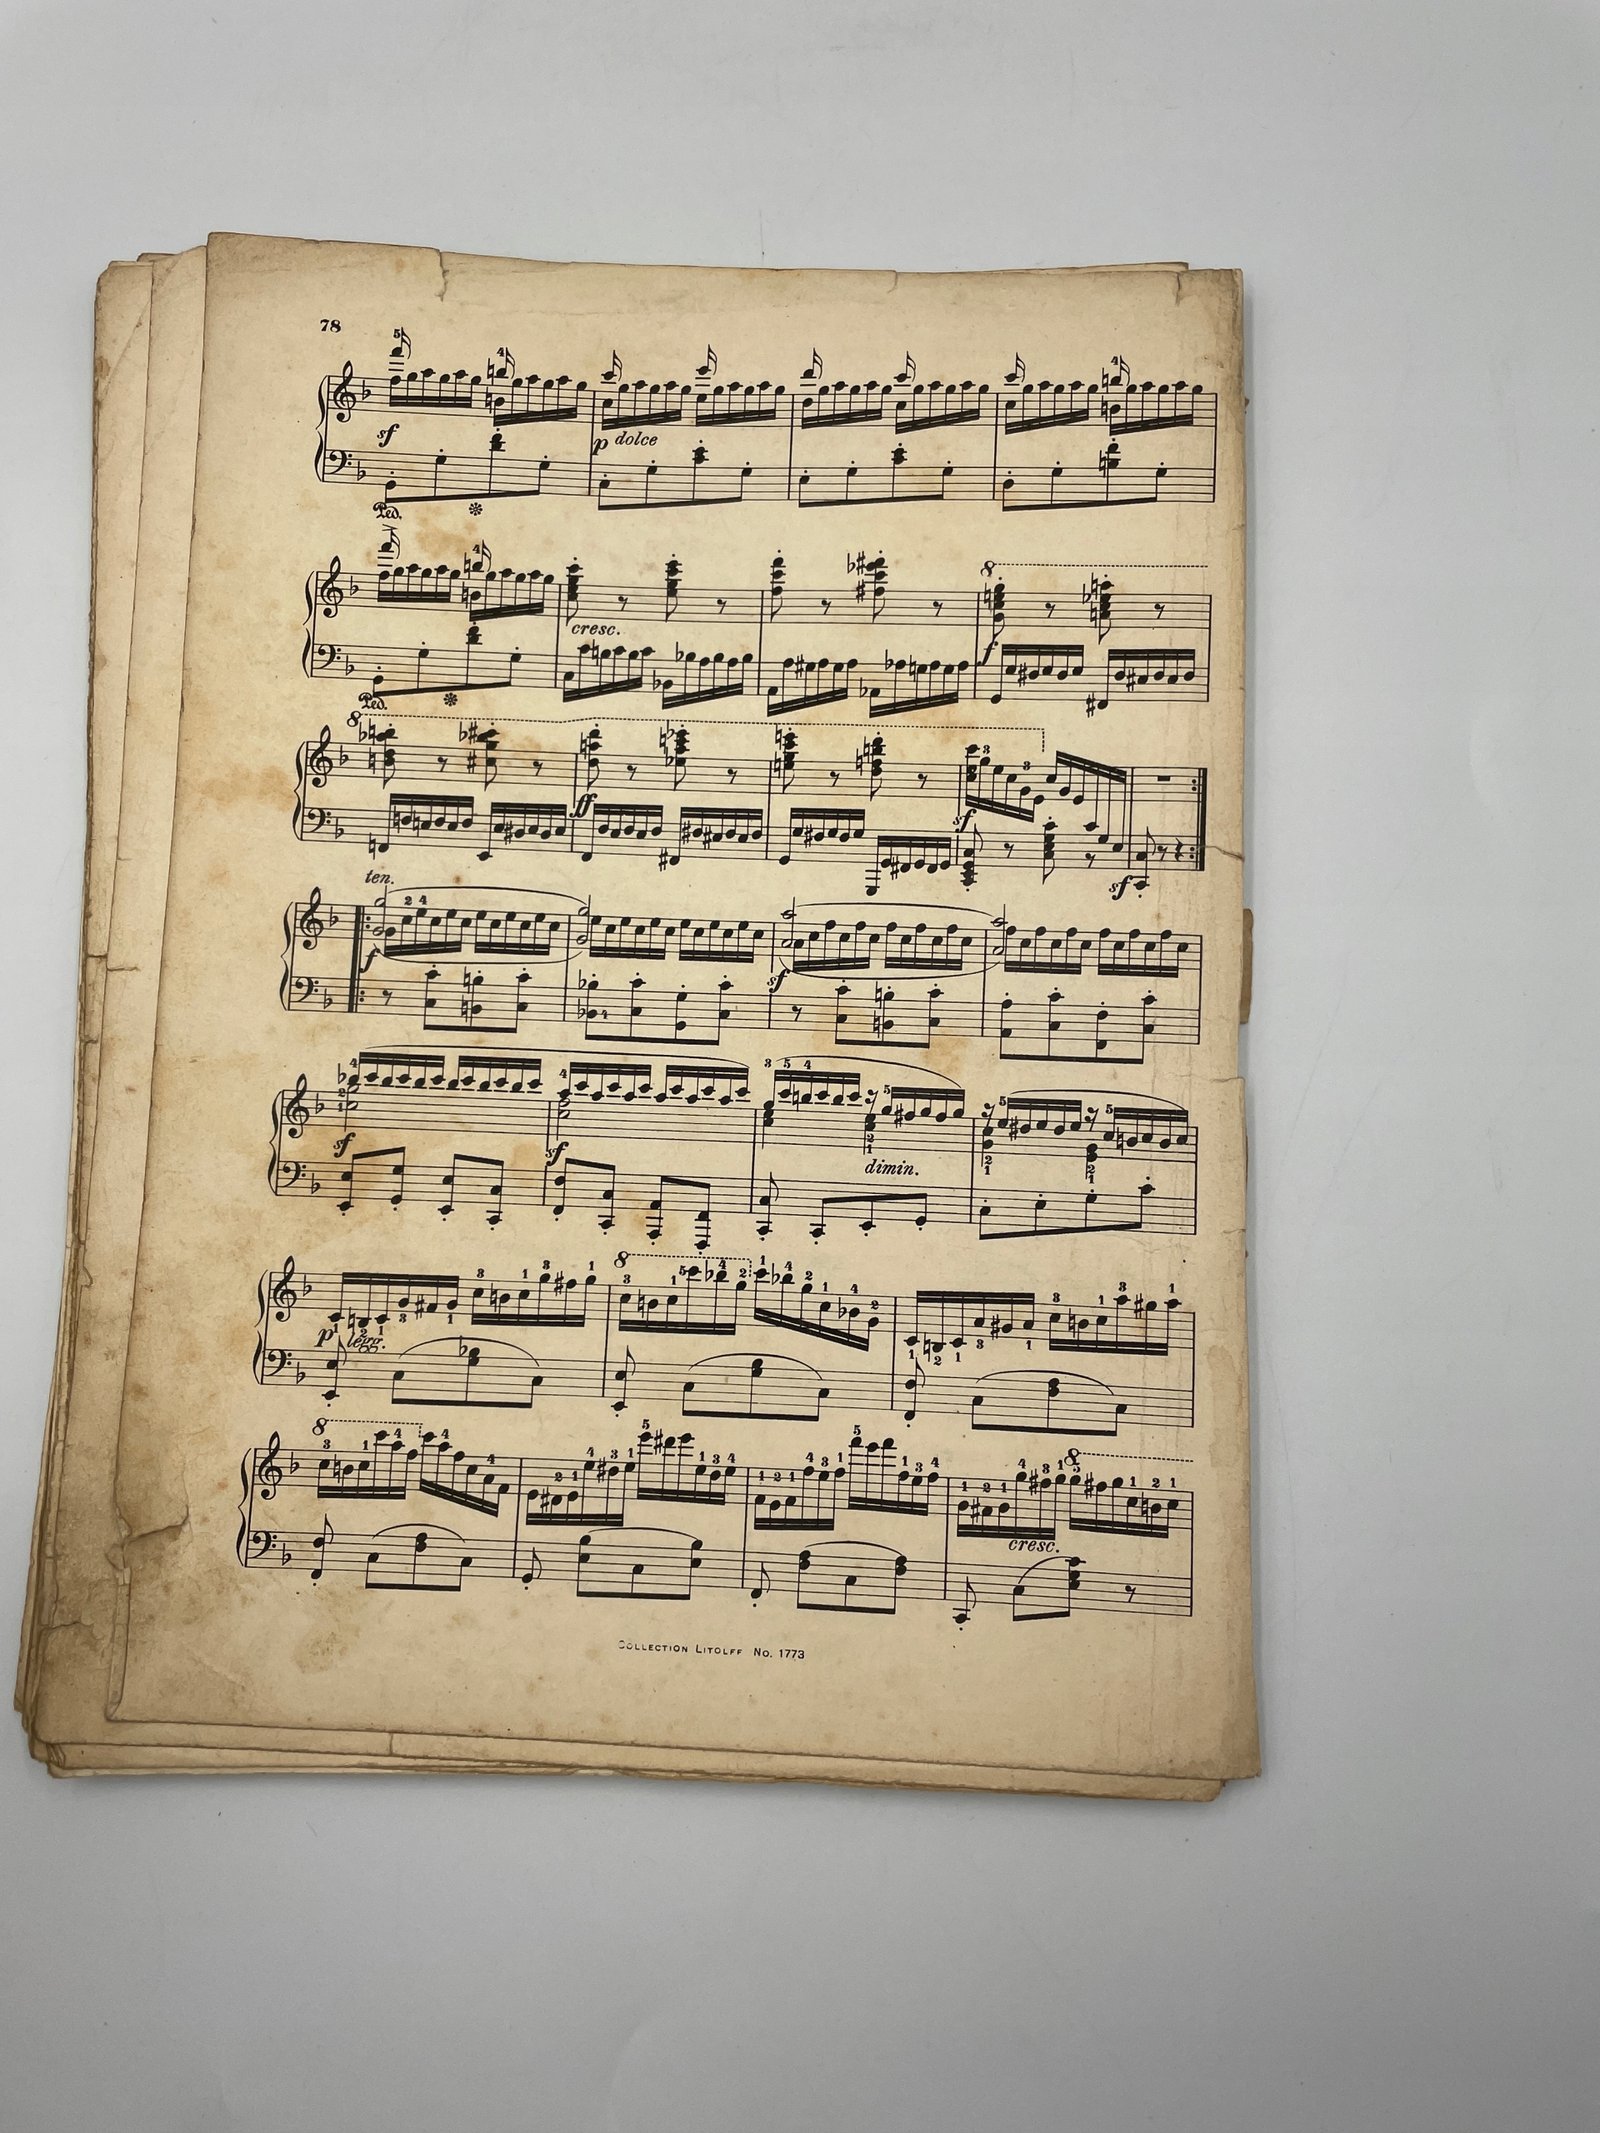 78
sf
p dolce
Ped.
cresc.
8
f
Ped.
8
ff
sf
sf
ten.
f
sf
sf
sf
dimin.
8
p legg.
8
8
cresc.
COLLECTION LITOLFF No. 1773